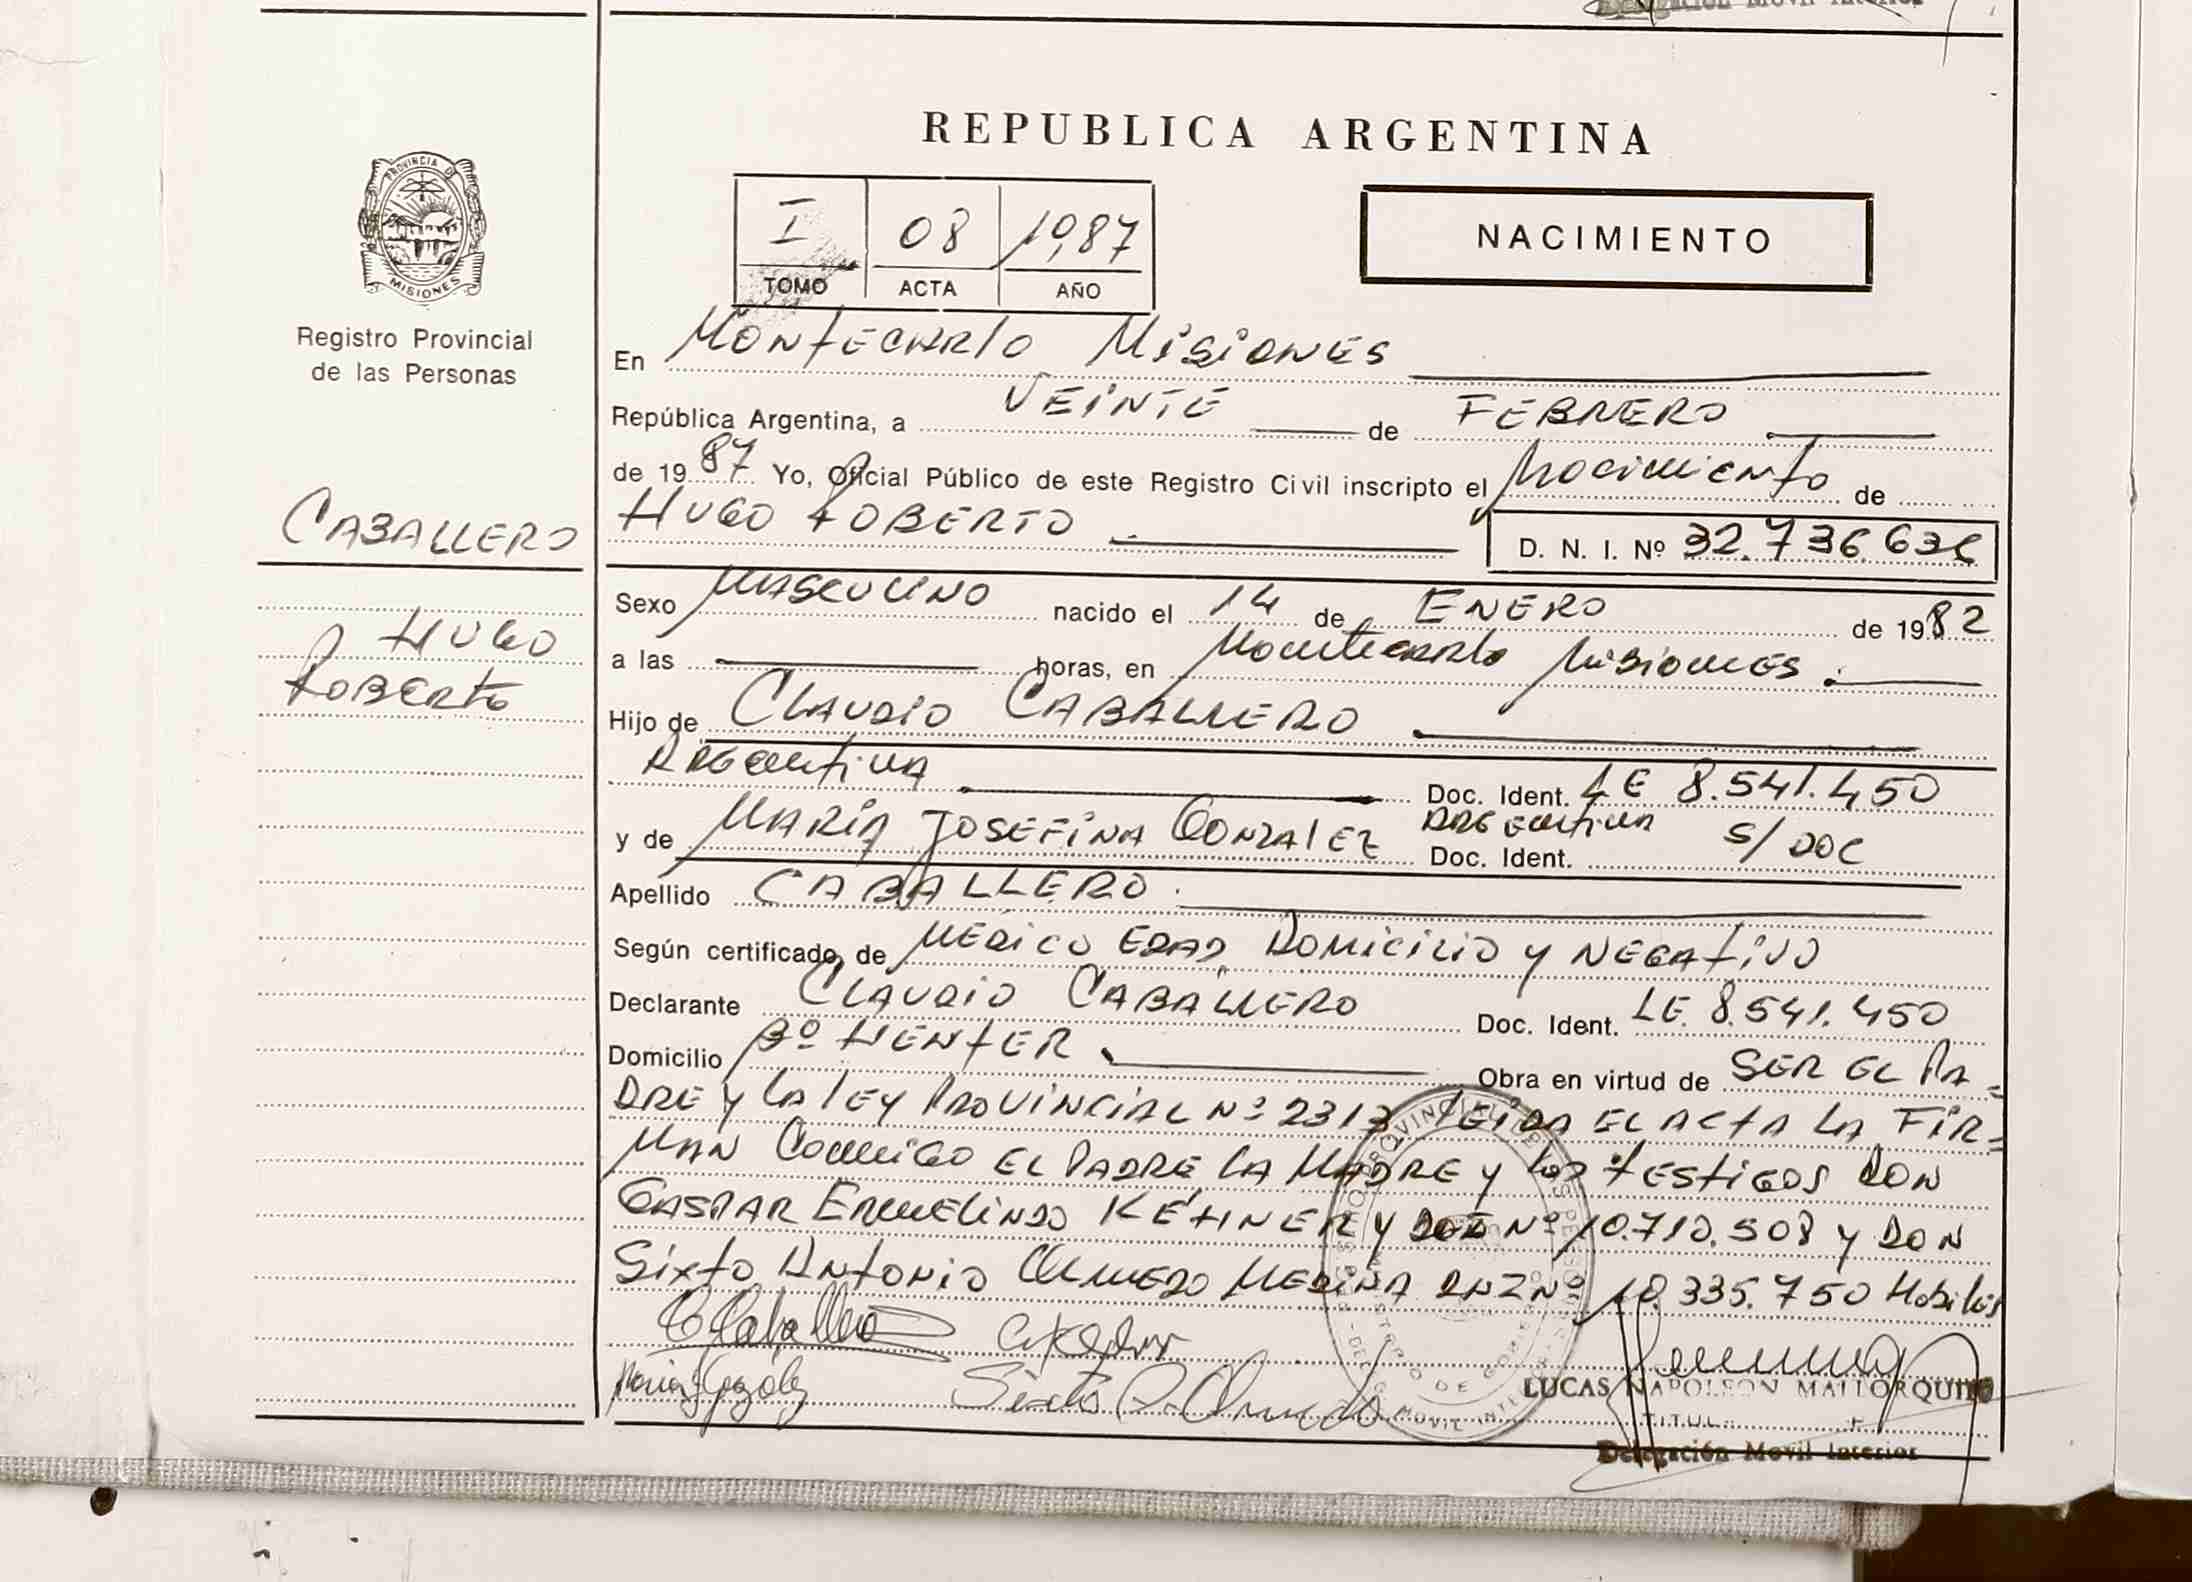 Delegación Movil Interior
REPUBLICA ARGENTINA
PROVINCIA DE
MISIONES
Registro Provincial
de las Personas
I 08 1987
TOMO ACTA AÑO
NACIMIENTO
En MONTECARLO MISIONES
República Argentina, a VEINTE de FEBRERO
de 1987 Yo, Oficial Público de este Registro Civil inscripto el Nacimiento de
CABALLERO
HUGO ROBERTO
D. N. I. Nº 32.736.636
HUGO
ROBERTO
Sexo MASCULINO nacido el 14 de ENERO de 1982
a las horas, en Montecarlo Misiones.
Hijo de CLAUDIO CABALLERO
ARGENTINA Doc. Ident. LE 8.541.450
y de MARIA JOSEFINA GONZALEZ ARGENTINA Doc. Ident. S/DOC
Apellido CABALLERO.
Según certificado de MEDICO EDAD DOMICILIO Y NEGATIVO
Declarante CLAUDIO CABALLERO Doc. Ident. LE. 8.541.450
Domicilio Bº HENTER Obra en virtud de SER EL PA=
DRE Y LA LEY PROVINCIAL Nº 2313 LEIDA EL ACTA LA FIR=
MAN CONMIGO EL PADRE LA MADRE Y LOS TESTIGOS DON
GASPAR ERMELINDO Nº 10.710.508 Y DON
SIXTO ANTONIO OLMEDO MEDINA DNI Nº 18.335.750 Habiles
C Caballero
Maria J Gonzalez Sixto A. Olmedo
LUCAS NAPOLEON MALLORQUIN
TITULAR
Delegación Movil Interior